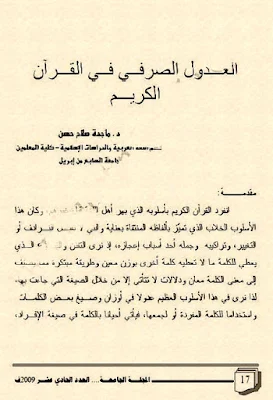 العدول الصرفي في القرآن
الكريم
د. ماجدة صلاح حسن
قسم اللغة العربية والدراسات الإسلامية – كلية المعلمين
جامعة السابع من إبريل
مقدمة :
انفرد القرآن الكريم بأسلوبه الذي بهر أهل وكان هذا
الأسلوب الخلاب الذي تميّز بألفاظه المنتقاة بعناية والتي في
التعبير، وتراكيبه وجمله أحد أسباب إعجازه، إذ ترى النص الذي
يعطي للكلمة ما لا تعطيه كلمة أخرى بوزن معين وطريقة مبتكرة مما يضيف
إلى معنى الكلمة معان ودلالات لا تتأتى إلا من خلال الصيغة التي جاءت بها،
لذا نرى في هذا الأسلوب العظيم عدولا في أوزان وصيغ بعض الكلمات
واستخداما للكلمة المفردة أو لجمعها، فيأتي أحيانا بالكلمة في صيغة الإفراد،
المجلة الجامعة .... العدد الحادي عشر 2009ف
17